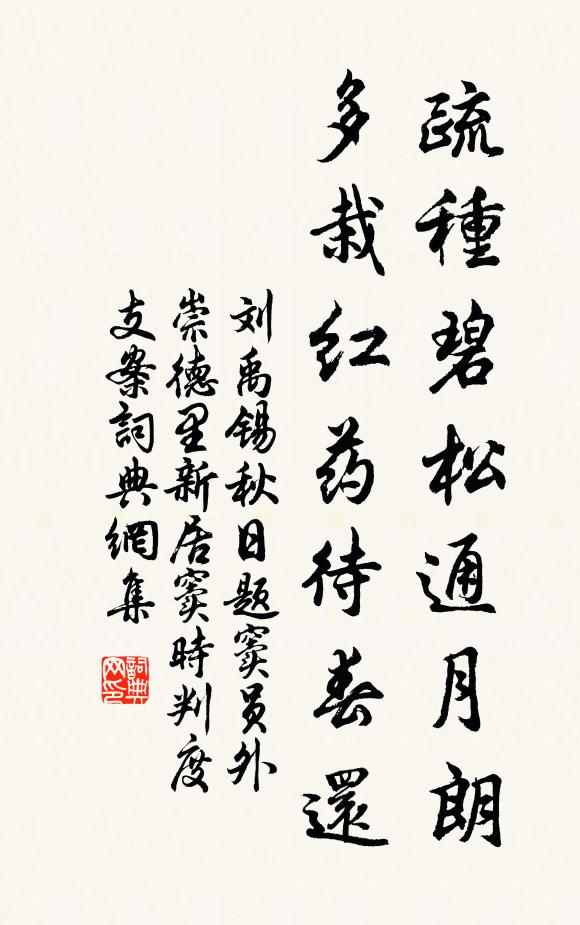 疏種碧松通月朗
多栽红药待春還
刘禹锡秋日题窦员外
崇德里新居窦時判度
支案詞典網集
詞典网印